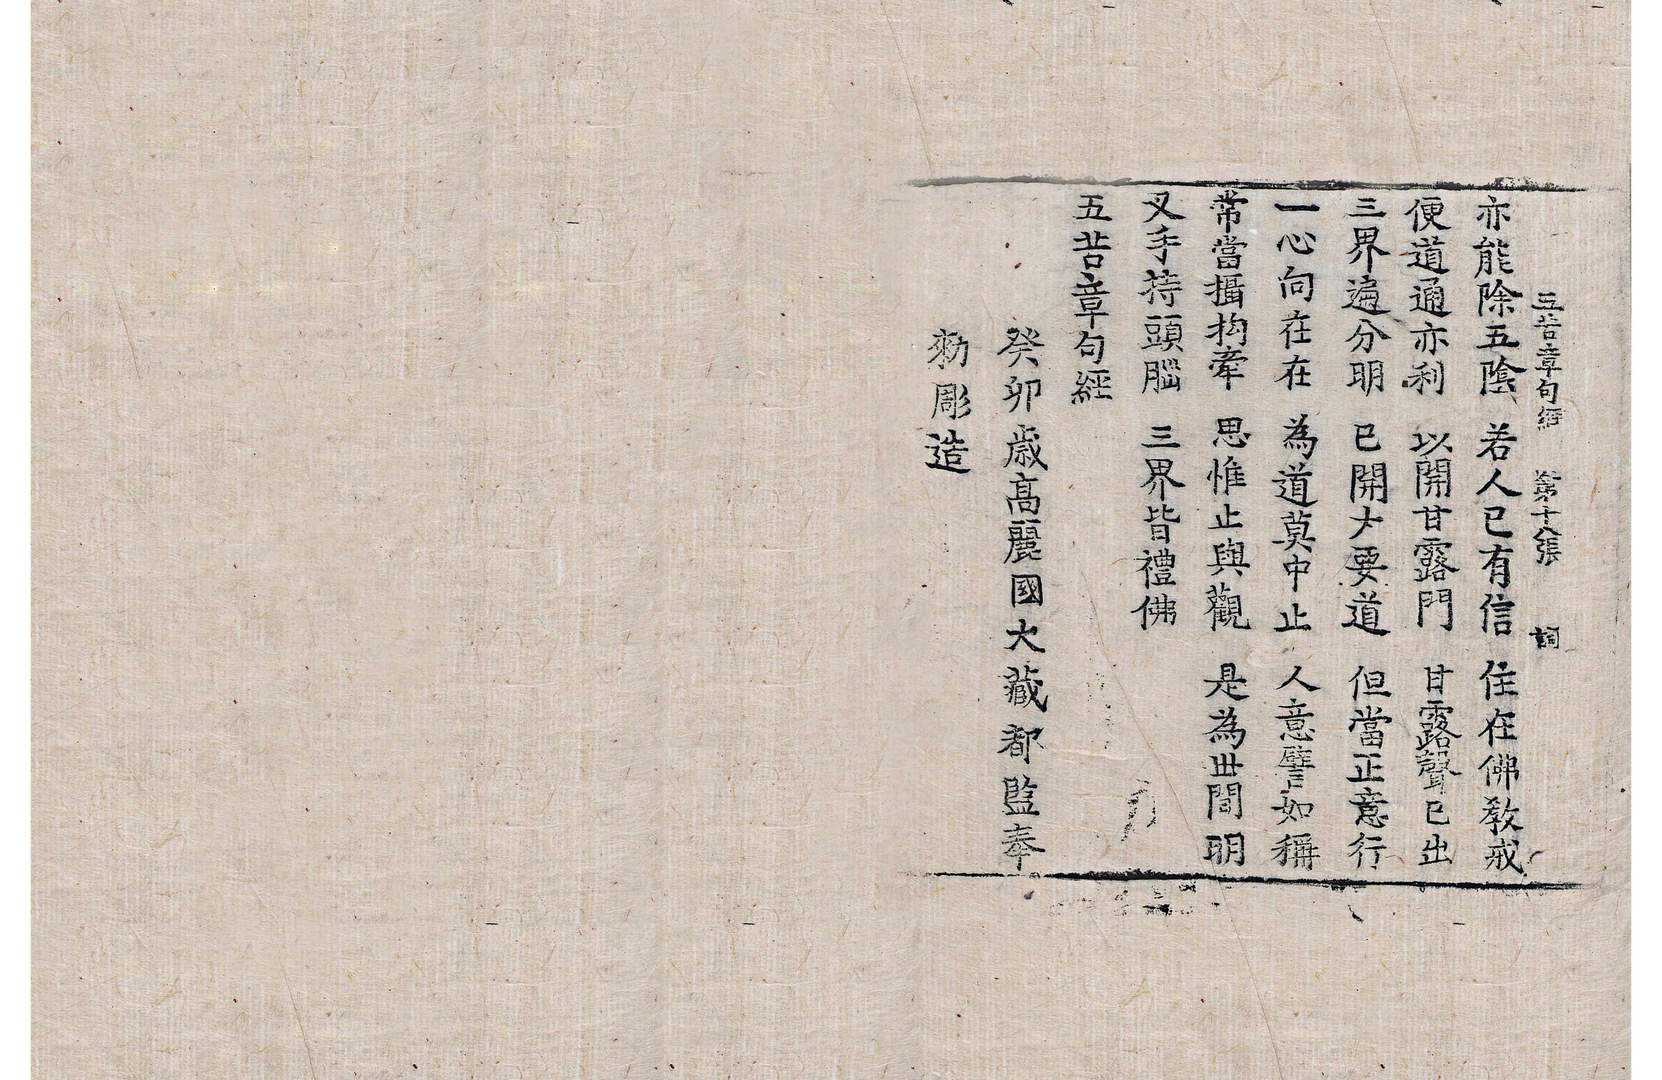 五苦章句經 第十八張 詞
亦能除五陰 若人已有信 住在佛敎戒
便道通亦利 以開甘露門 甘露聲已出
三界遍分明 已開大要道 但當正意行
一心向在在 為道莫中止 人意譬如稱
常當攝拘牽 思惟止與觀 是為世間明
叉手持頭腦 三界皆禮佛
五苦章句經
癸卯歲高麗國大藏都監奉
勅彫造